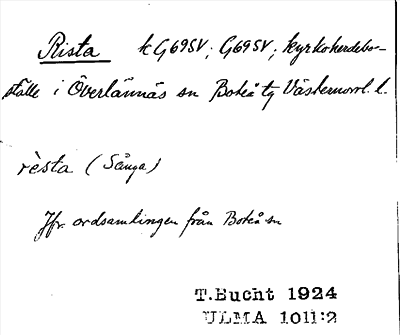 Rista kG69SV; G69SV; kyrkoherdebo-
ställe i Överlännäs sn Boteå tg Västernorrl. l.
rèsta (Sånga)
Jfr ordsamlingen från Boteå sn
T.Bucht 1924
ULMA 1011:2